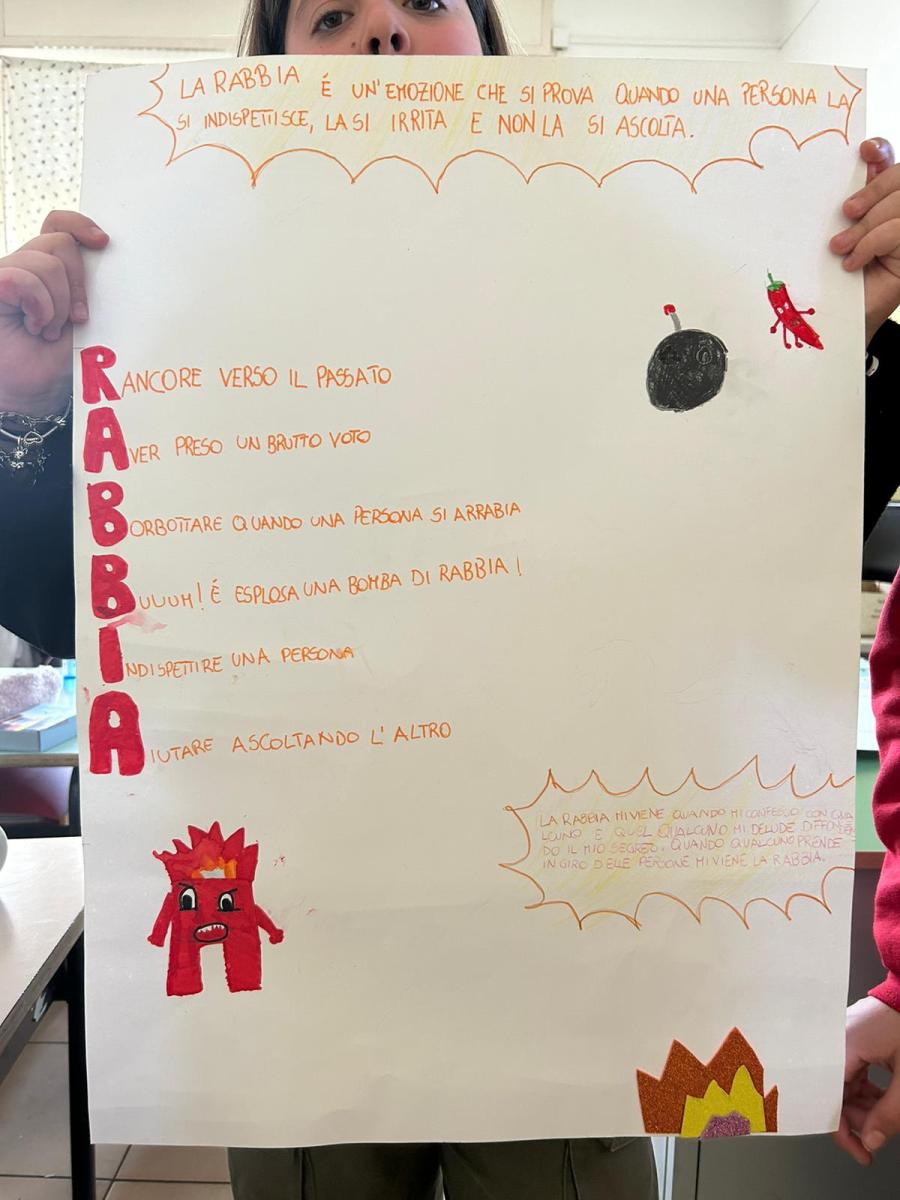 LA RABBIA É UN'EMOZIONE CHE SI PROVA QUANDO UNA PERSONA LA
SI INDISPETTISCE, LA SI IRRITA E NON LA SI ASCOLTA.
RANCORE VERSO IL PASSATO
AVER PRESO UN BRUTTO VOTO
BORBOTTARE QUANDO UNA PERSONA SI ARRABIA
BUUUM! É ESPLOSA UNA BOMBA DI RABBIA!
INDISPETTIRE UNA PERSONA
AIUTARE ASCOLTANDO L'ALTRO
LA RABBIA MI VIENE QUANDO MI CONFESSO CON QUA
LCUNO E QUEL QUALCUNO MI DELUDE DIFFONDEN
DO IL MIO SEGRETO. QUANDO QUALCUNO PRENDE
IN GIRO DELLE PERSONE MI VIENE LA RABBIA.